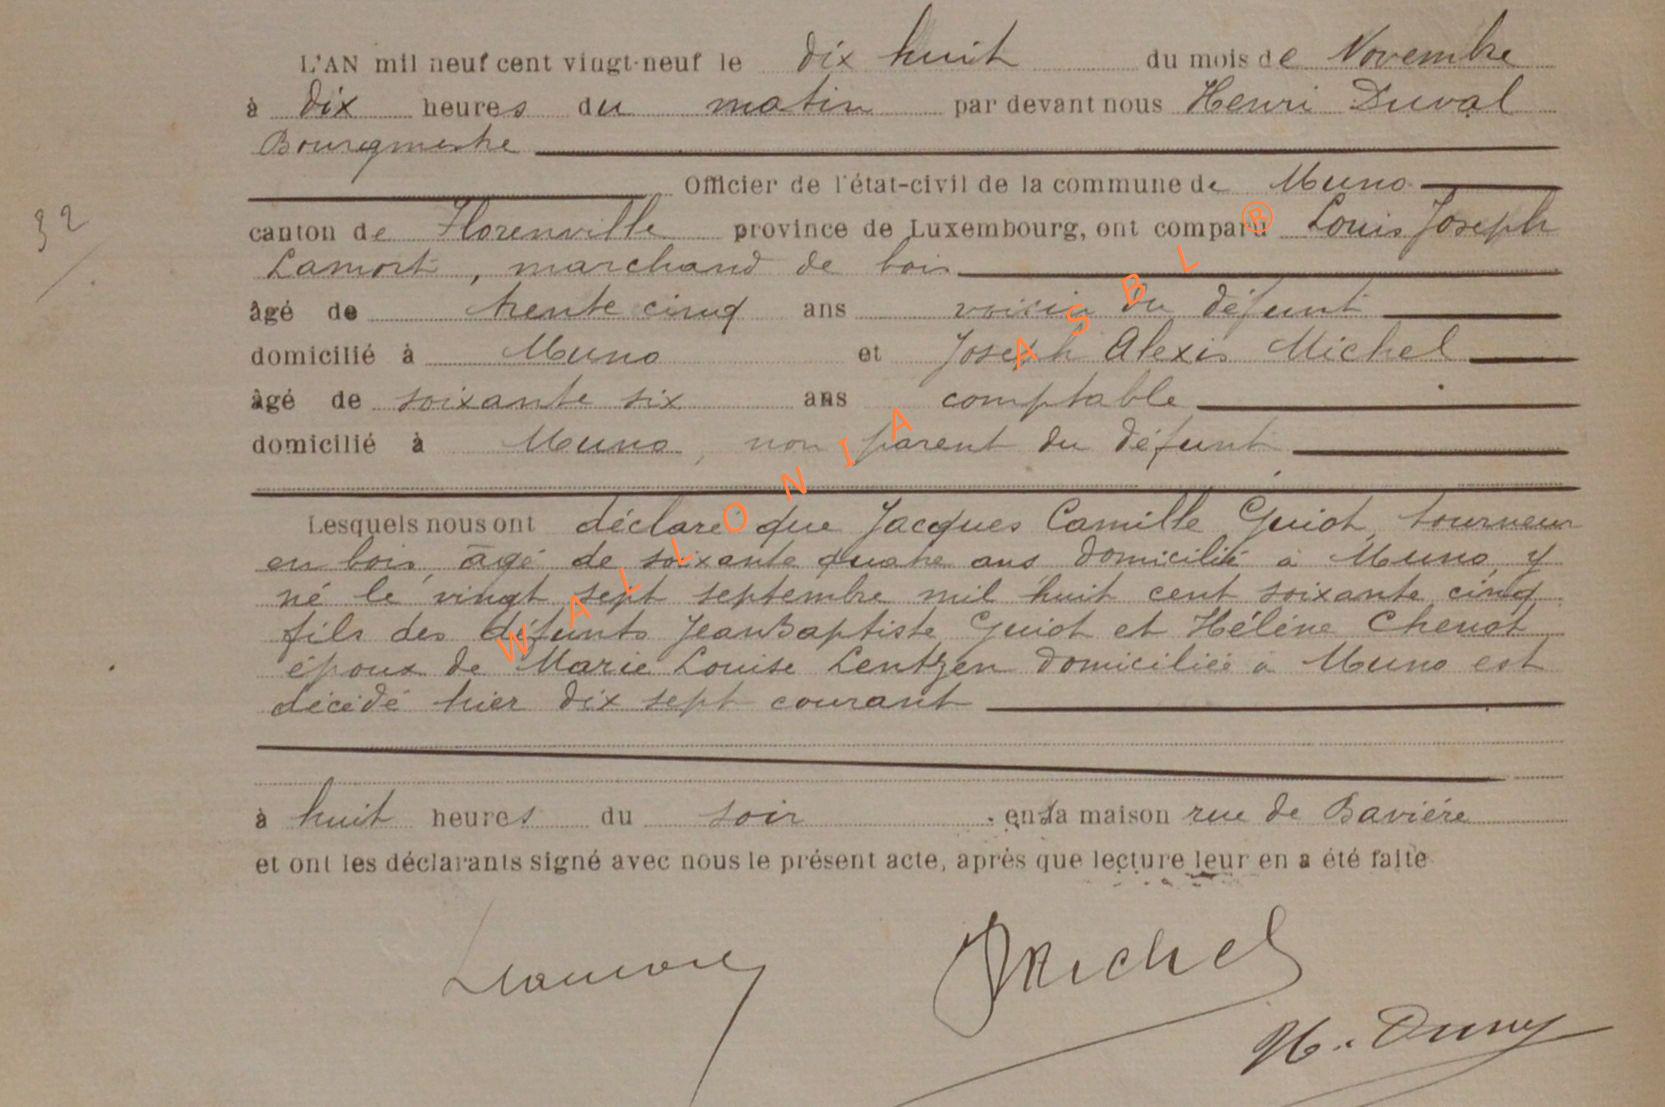 L'AN mil neuf cent vingt-neuf le dix huit du mois de Novembre
à dix heures du matin par devant nous Henri Duval
Bourgmestre
Officier de l'état-civil de la commune de Muno
32
canton de Florenville province de Luxembourg, ont comparu Louis Joseph
Lamort, marchand de bois
âgé de trente cinq ans voisin du défunt
domicilié à Muno et Joseph Alexis Michel
âgé de soixante six ans comptable
domicilié à Muno, non parent du défunt
Lesquels nous ont déclaré que Jacques Camille Guiot, tourneur
en bois, âgé de soixante quatre ans domicilié à Muno, y
né le vingt sept septembre mil huit cent soixante cinq
fils des défunts Jean Baptiste Guiot et Hélène Chenot
époux de Marie Louise Lentzen domiciliée à Muno est
décédé hier dix sept courant
à huit heures du soir en sa maison rue de Bavière
et ont les déclarants signé avec nous le présent acte, après que lecture leur en a été faite
Michel
H.
WALLONIA ASBL ®